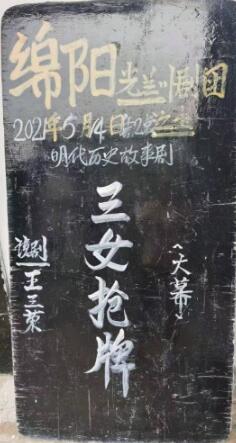 绵阳光兰川剧团
2021年5月14日
明代历史故事剧
三女抢牌
(大幕)
说剧
王三荣